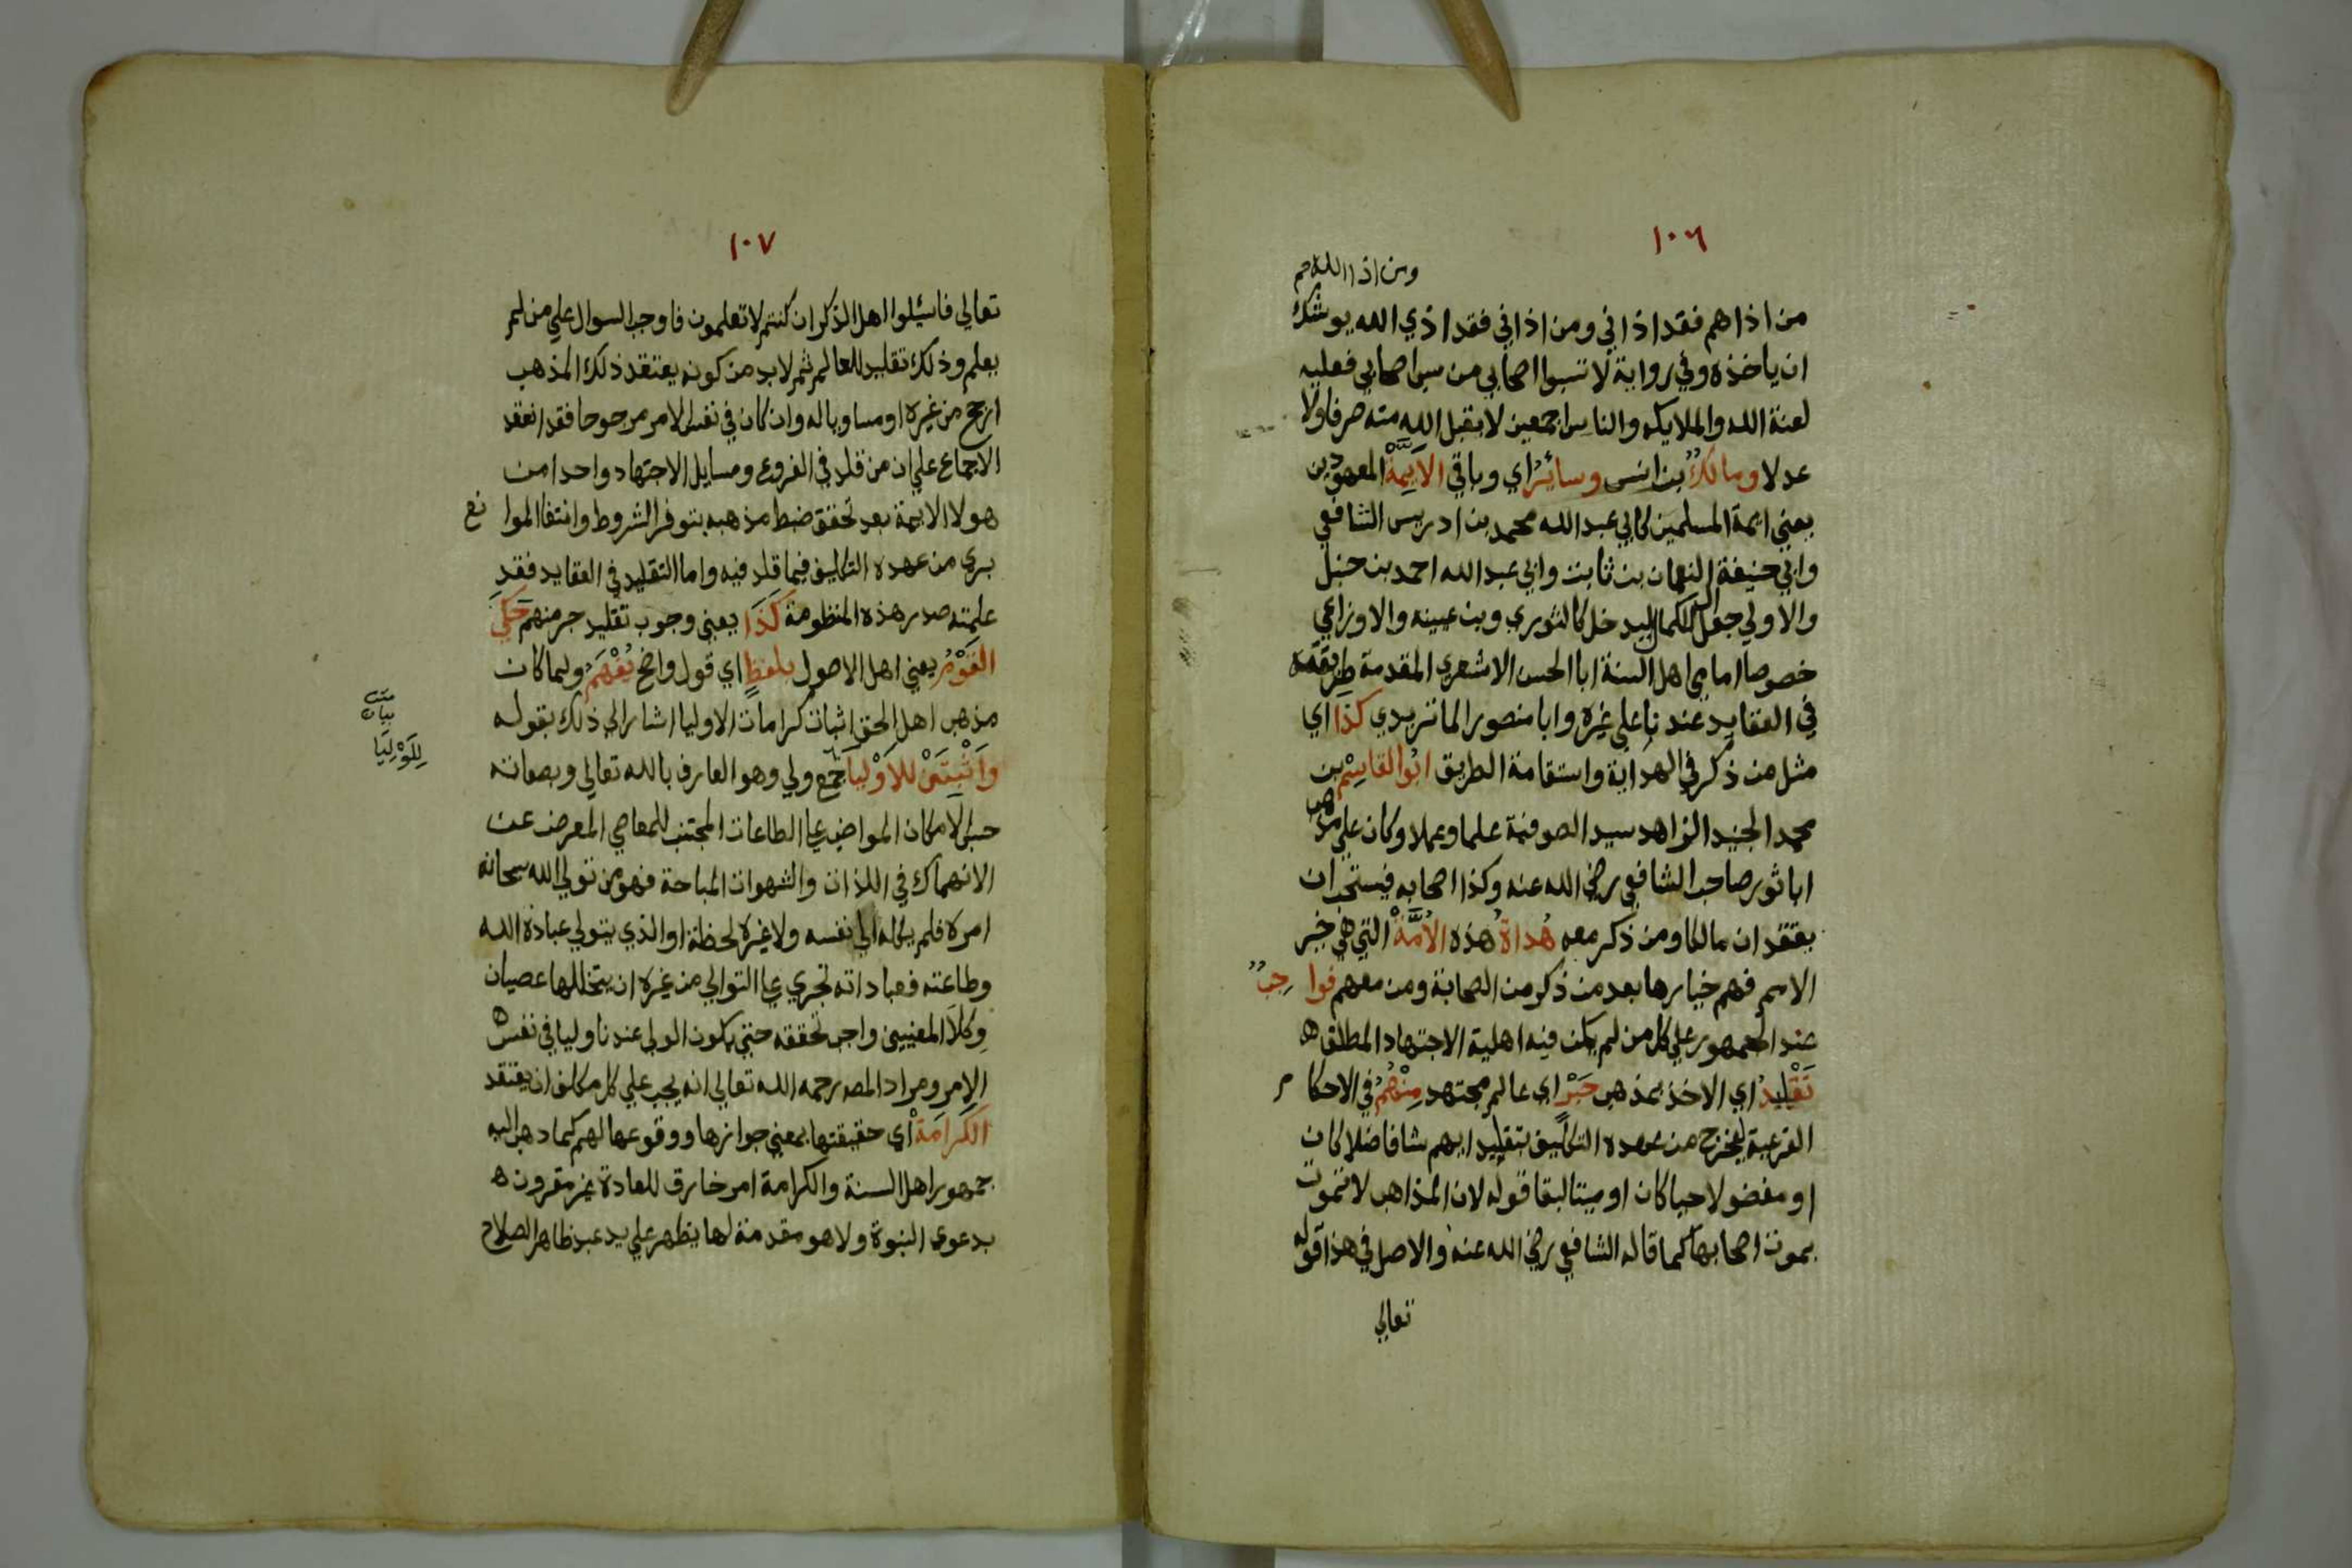 ١٠٦
ومن اذا الله م
من اذاهم فقد اذاني ومن اذاني فقد اذي الله يوشك
ان ياخذه وفي رواية لا تسبوا اصحابي من سب اصحابي فعليه
لعنة الله والملايكه والناس اجمعين لا يقبل الله منه صرفا ولا
عدلا ومالكٌ بن انس وسائرُ اي وباقي الأيمّةْ المعهودين
يعني ايمة المسلمين كابي عبد الله محمد بن ادريس الشافعي
وابي حنيفة النعمان بن ثابت وابي عبد الله احمد بن حنبل
والاولي جعل ال للكمال ليدخل كالثوري وبن عيينه والاوزاعي
خصوصا امامي اهل السنة ابا الحسن الاشعري المقدمة طريقته
في العقايد عندنا علي غيره وابا منصور الماتريدي كذا اي
مثل من ذكر في الهداية واستقامة الطريق ابُوا القاسِمْ بن
محمد الجنيد الزاهد سيد الصوفية علما وعملا وكان علي مذهب
ابا ثور صاحب الشافعي رضي الله عنه وكذا اصحابه فيستحب ان
يعتقد ان مالكا ومن ذكر معه هُداةُ هذه الأُمَّةْ التي هي خير
الامم فهم خيارها بعد من ذكر من الصحابة ومن معهم فواجبٌ
عند الجمهور علي كل من لم يكن فيه اهلية الاجتهاد المطلق ه
تَقْلِيدُ اي الاخذ بمذهب حَبْرٍ اي عالم مجتهد مِنْهُمُ في الاحكام
الفرعية ليخرج من عهدة التكليف بتقليد ايهم شا فاضلا كان
او مفضولا حيا كان او ميتا لبقا قوله لان المذاهب لا تموت
بموت اصحابها كما قاله الشافعي رضي الله عنه والاصل في هذا قوله
تعالي
١٠٧
تعالي فاسئلوا اهل الذكر ان كنتم لا تعلمون فاوجب السوال علي من لم
يعلم وذلك تقليد للعالم ثم لابد من كونه يعتقد ذلك المذهب
ارجح من غيره او مساويا له وان كان في نفس الامر مرجوحا فقد انعقد
الاجماع علي ان من قلد في الفروع ومسايل الاجتهاد واحدا من
هولا الايمة بعد تحقق ضبط مذهبه بتوفر الشروط وانتفا الموانع
بري من عهدة التكليف فيما قلد فيه واما التقليد في العقايد فقد
علمته صدر هذه المنظومة كَذَا يعني وجوب تقليد حبر منهم حَكَي
القَوْمُ يعني اهل الاصول بلفظٍ اي قول واضح يُفْهَمُ ولما كان
مذهب اهل الحق اثبات كرامات الاوليا اشار الي ذلك بقوله
وَأثْبِتَنْ لِلاَوْلِيا جمع ولي وهو العارف بالله تعالي وبصفاته
حسب الامكان المواضب علي الطاعات المجتنب للمعاصي المعرض عن
الانهماك في اللذات والشهوات المباحة فهو من تولي الله سبحانه
امره فلم يكله الي نفسه ولا غيره لحظة او الذي يتولي عبادة الله
وطاعته فعباداته تجري علي التوالي من غيره ان يتخللها عصيان
وكلا المعنيين واجب تحققه حتي يكون الولي عندنا وليا في نفس ه
الامر ومراد المصـ رحمه الله تعالي انه يجب علي كل مكلف ان يعتقد
الكَرَامَةْ اي حقيقتها بمعني جوازها ووقوعها لهم كما دهب اليه
جمهور اهل السنة والكرامة امر خارق للعادة غير مقرون ه
بدعوي النبوة ولا هو مقدمة لها يظهر علي يد عبد ظاهر الصلاح
بيان
لِلَوْلِيَا